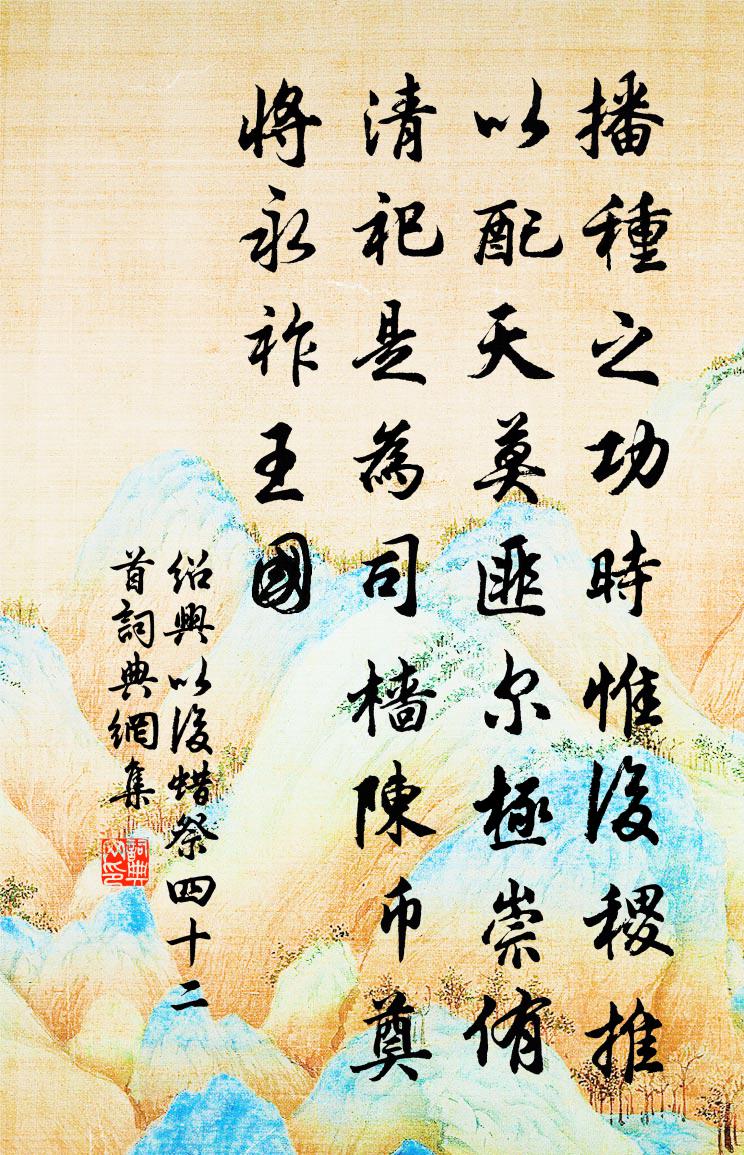 播種之功時惟後稷推
以配天莫匪尔極崇侑
清祀是為司樯陳币奠
將永祚王國
绍興以後蜡祭四十二
首詞典網集
詞典